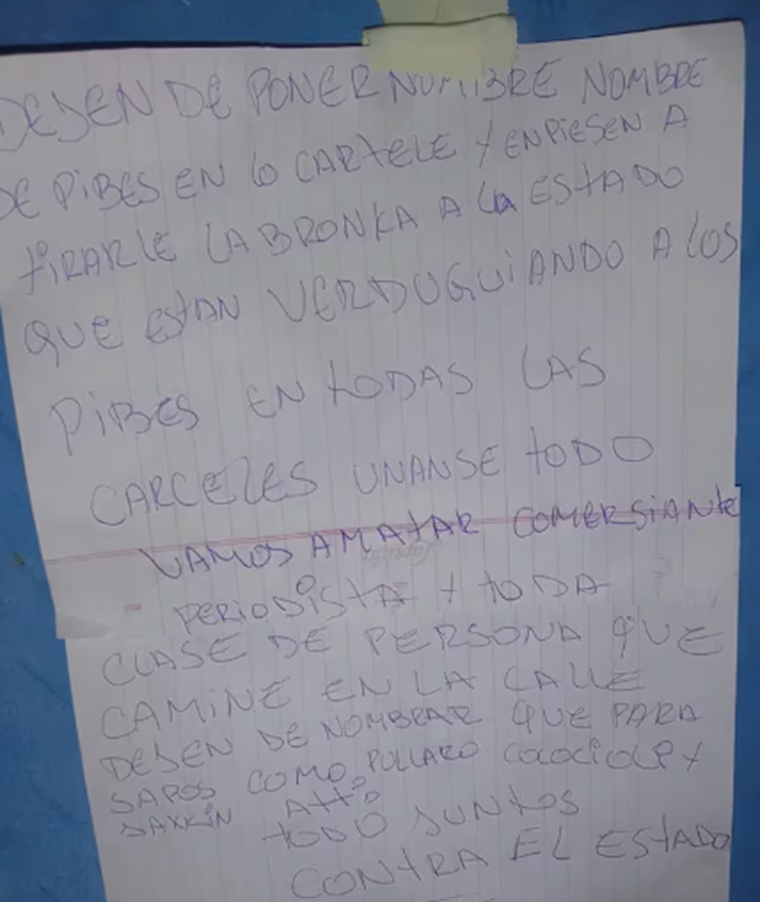 DEJEN DE PONER NOMBRE NOMBRE
DE PIBES EN LO CARTELE Y ENPIESEN A
TIRARLE LA BRONKA A La ESTADO
QUE ESTAN VERDUGUiANDO A LOS
PIBES EN TODAS LAS
CARCELES UNANSE TODO
VAMOS A MATAR COMERSIANTE
PERIODISTA Y TODA
CLASE DE PERSONA QUE
CAMINE EN LA CALLE
DEJEN DE NOMBRAR QUE PARA
SAPOS COMO PULLARO COCOCIOLE Y
ATTO
TODO JUNTOS
CONTRA EL ESTADO